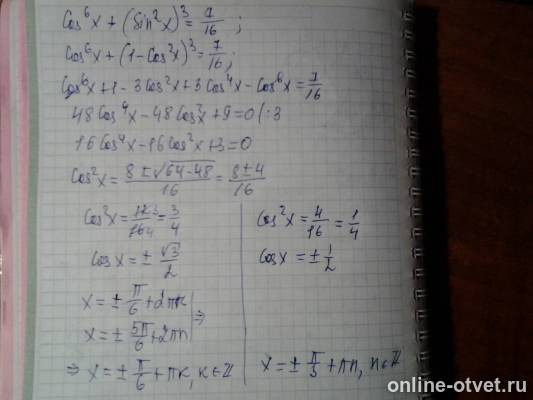 Cos⁶x + (Sin²x)³ = 7/16 ;
Cos⁶x + (1 - Cos²x)³ = 7/16 ;
Cos⁶x + 1 - 3Cos²x + 3Cos⁴x - Cos⁶x = 7/16
48Cos⁴x - 48Cos²x + 9 = 0 | :3
16Cos⁴x - 16Cos²x + 3 = 0
Cos²x = (8 ± √(64 - 48))/16 = (8 ± 4)/16
Cos²x = 12/16 = 3/4
Cos x = ± √3/2
x = ± π/6 + 2πk
x = ± 5π/6 + 2πn | ⇒
⇒ x = ± π/6 + πk, k ∈ Z
Cos²x = 4/16 = 1/4
Cos x = ± 1/2
x = ± π/3 + πn, n ∈ Z
online-otvet.ru